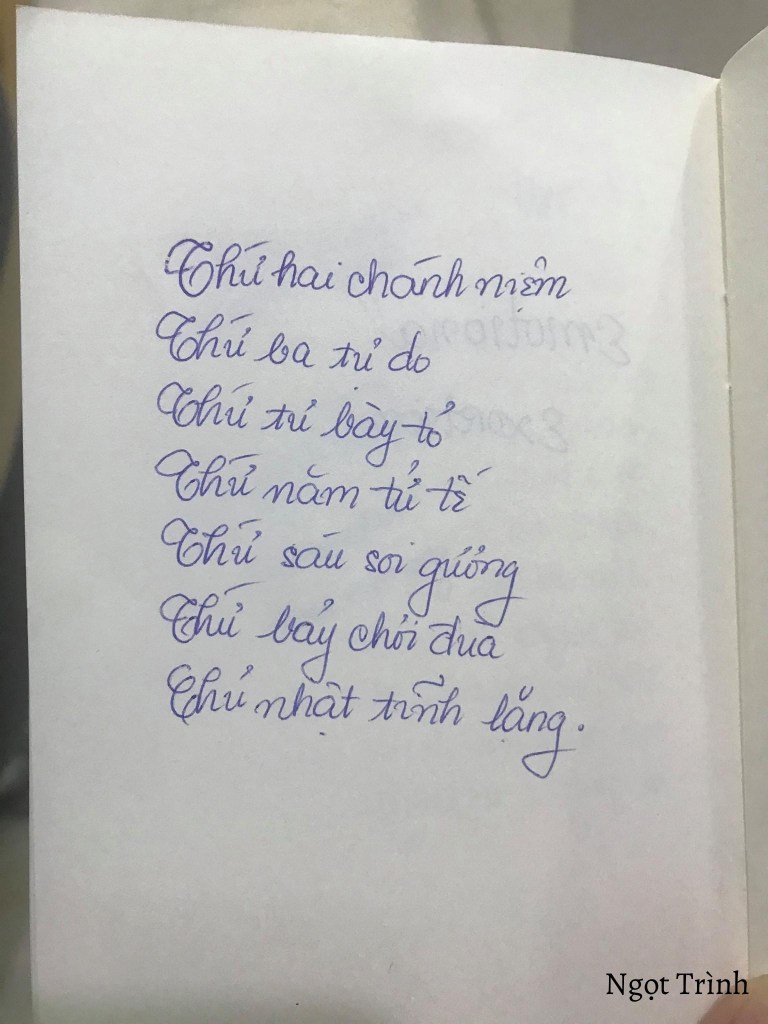 Thứ hai chánh niệm
Thứ ba tự do
Thứ tư bày tỏ
Thứ năm tử tế
Thứ sáu soi gương
Thứ bảy chơi đùa
Chủ nhật tĩnh lặng.
Ngọt Trình